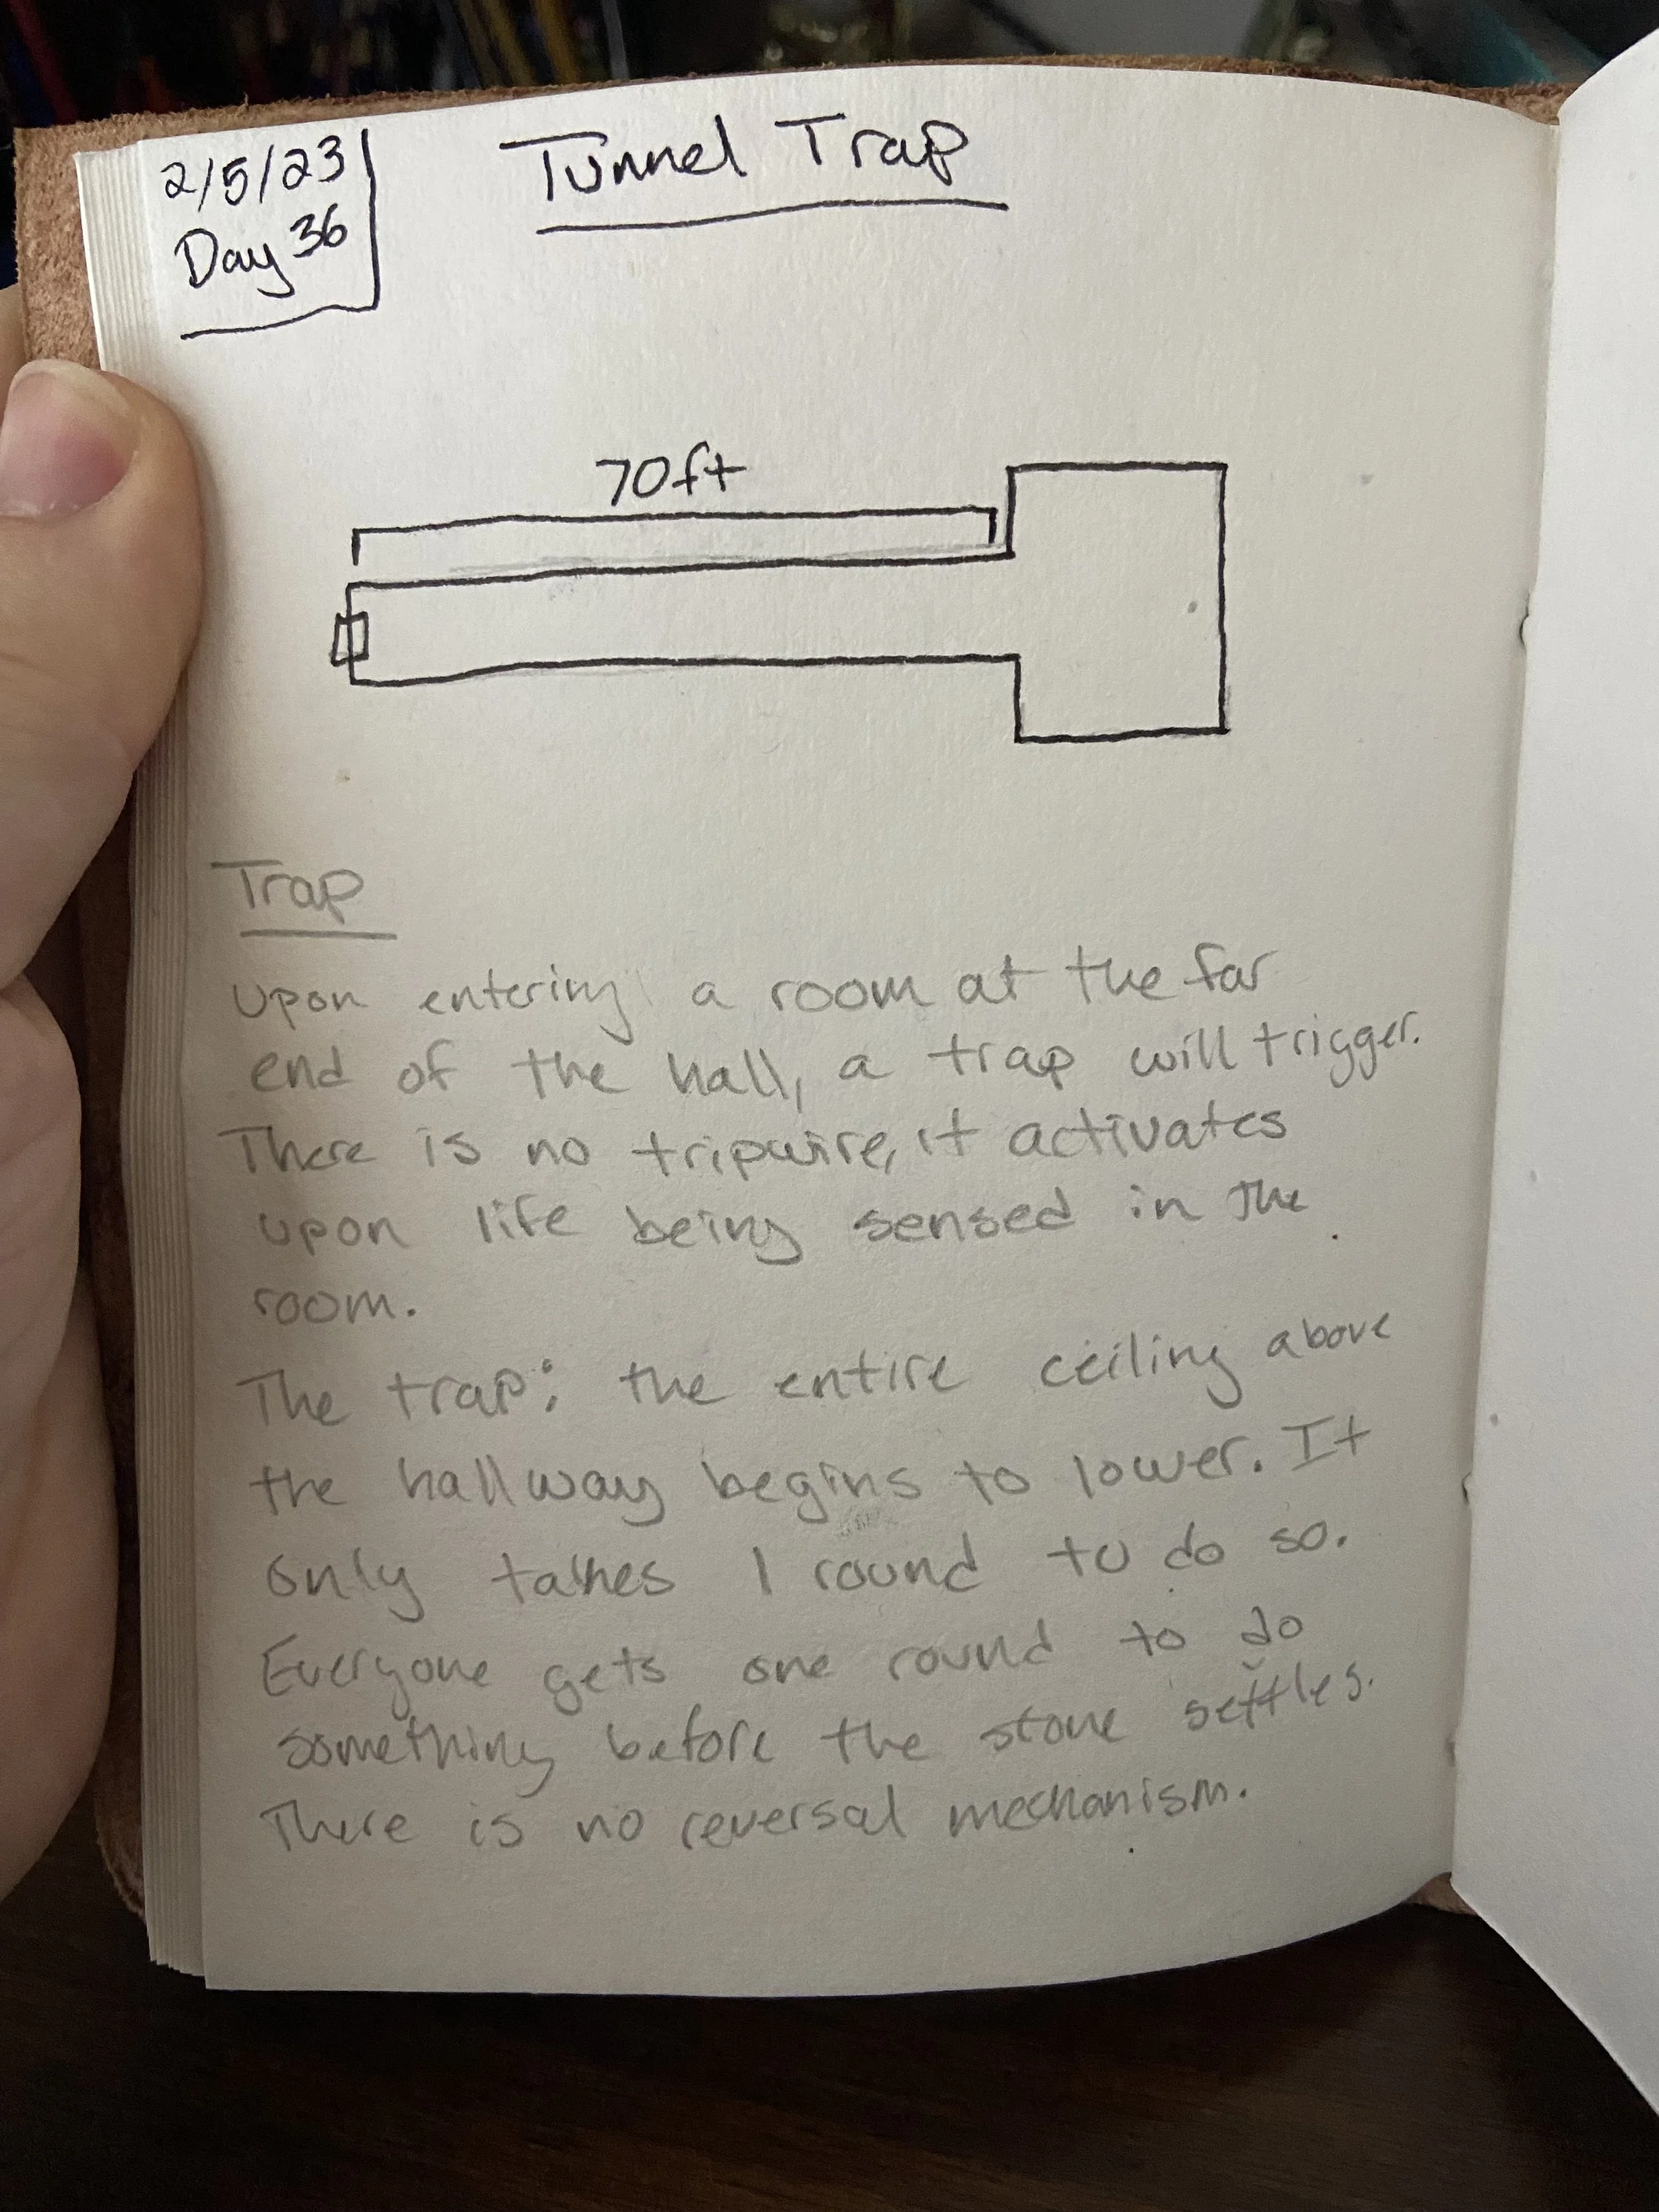 2/5/23
Day 36
Tunnel Trap
70ft
Trap
Upon entering a room at the far
end of the hall, a trap will trigger.
There is no tripwire, it activates
upon life being sensed in the
room.
The trap: the entire ceiling above
the hallway begins to lower. It
only takes 1 round to do so.
Everyone gets one round to do
something before the stone settles.
There is no reversal mechanism.